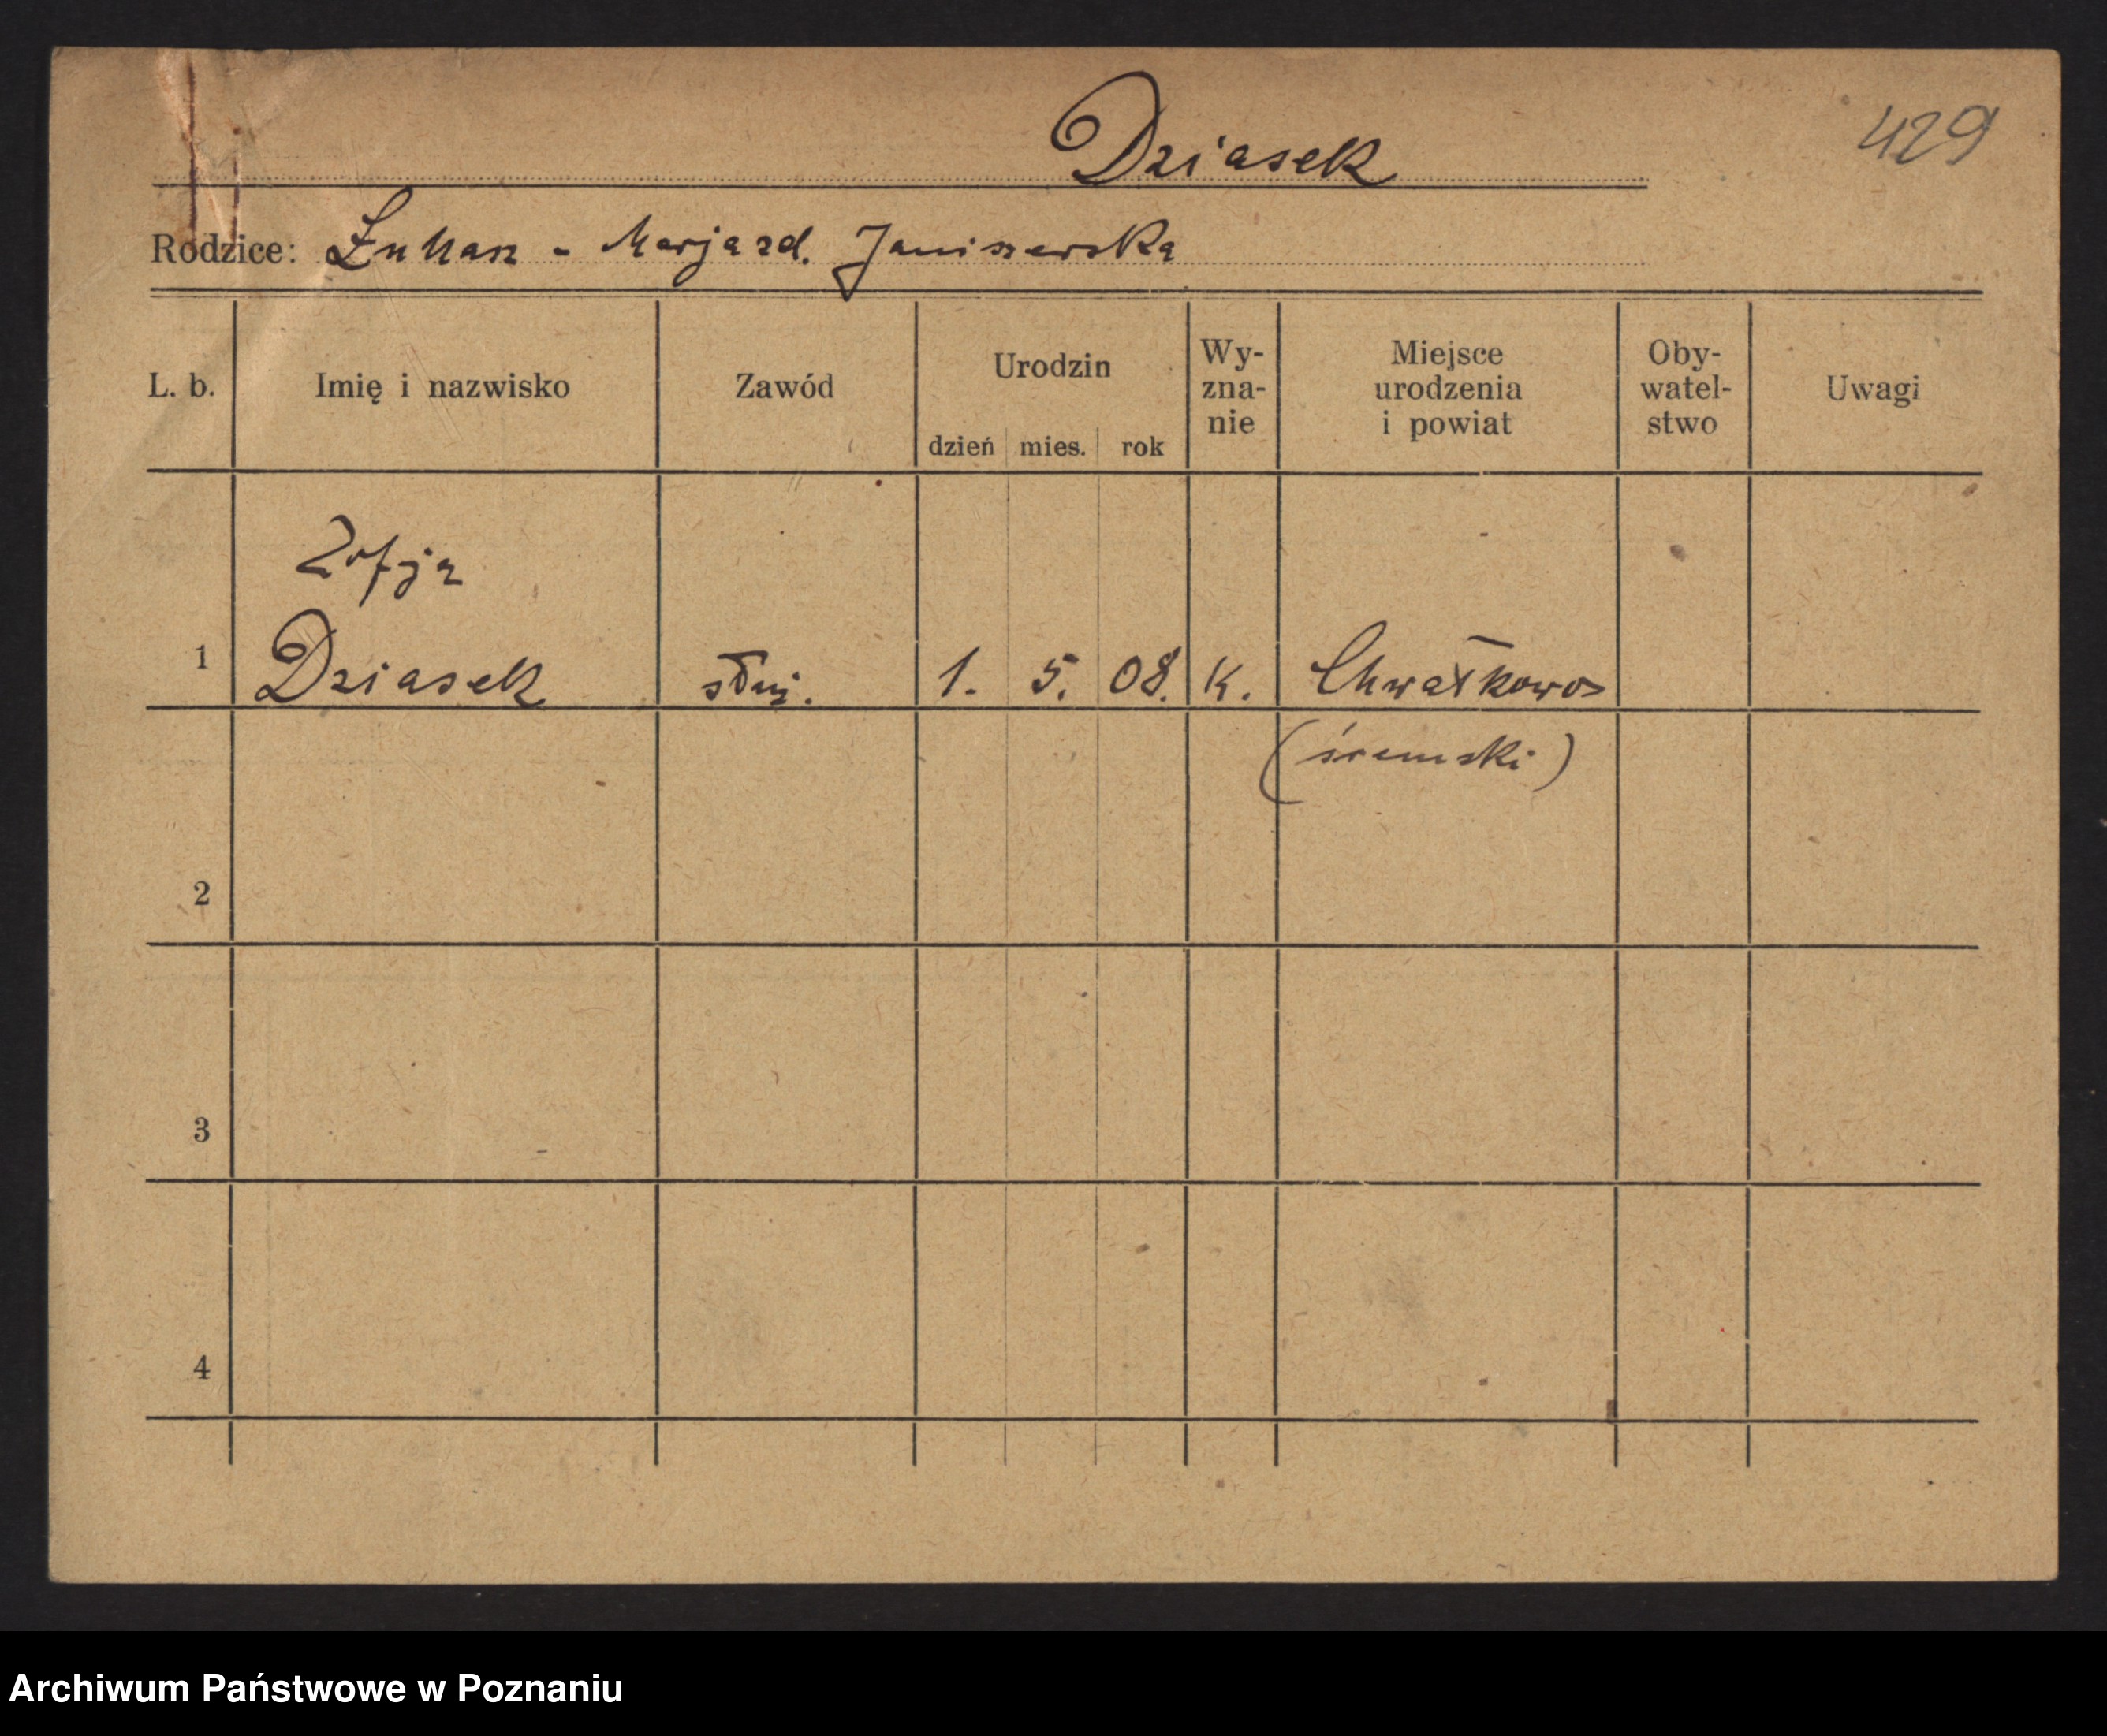 Dziasek
429
Rodzice: Łukasz - Marja zd. Janiszewska
L. b. Imię i nazwisko Zawód Urodzin dzień mies. rok Wy-zna-nie Miejsce urodzenia i powiat Oby-watel-stwo Uwagi
Zofja
1 Dziasek służ. 1. 5. 08. K. Chwałkowo
(śremski)
2
3
4
Archiwum Państwowe w Poznaniu